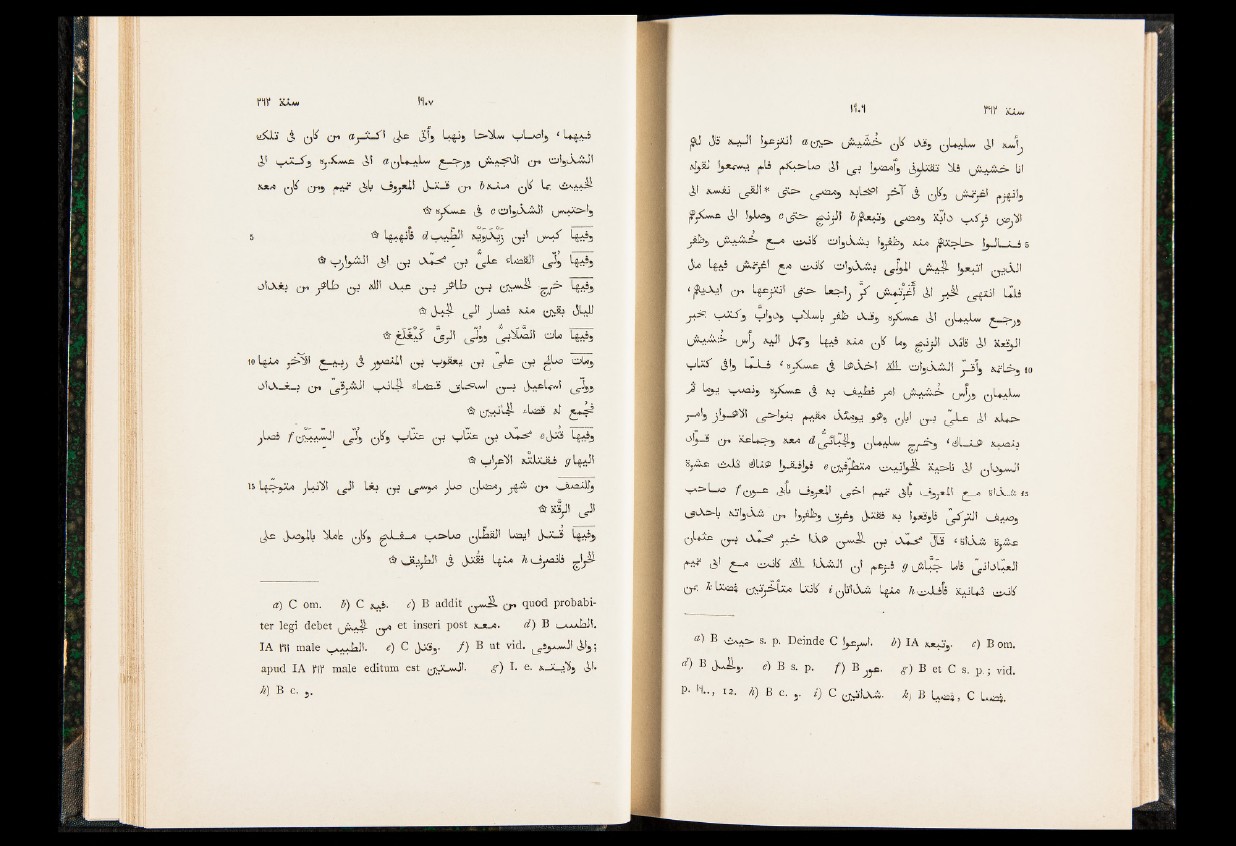 سنة ٢٦٢ ١٩٠٦
رأسه الى سليمان وقد كان خشيش حين a انتزعوا اليه قال لهم
انا خشيش فلا تقتلونى وامضوا بى الى صاحبكم فلم يسمعوا لقوله
وانهزم اغرتمش وكان فى آخر اصحابه ومضى حتى * القى نفسه الى
الارض فركب دابّة ومضى وتبعهم b الزنج حتى c وصلوا الى عسكرهم
فنالوا حاجتهم منه وظفروا بشذوات كانت مع خشيش وظفر 5
الذين اتبعوا الجيش المولّى بشذوات كانت مع اغرتمش فيها مال
فلمّا انتهى الخبر الى أغرتمش كرّ راجعا حتى انتزعها من ايديهم،
ورجع سليمان الى عسكره وقد ظفر باسلاب ودوابّ وكتب بخبر
الوقعة الى قائد الزنج وما كان منه فيها وحمل اليه رأس خشيش
وخاتمه وأقرّ الشذوات التى اخذها فى عسكره، فلمّا وافى كتاب 10
سليمان ورأس خشيش امر فطيف به فى عسكره ونصب يوما ثم
حمله الى علىّ بن ابان وهو يومئذ مقيم بنواحى الاهواز وامر
بنصبه هناك، وخرج سليمان والجبّائىّ d معه وجماعة من قوّاد
السودان الى ناحية الحوانيت متطرّفين e فوافقوا هناك ثلث عشرة
شذاة مع المعروف بأبى تميم اخى المعروف بأبى عون f صاحب 15
وصيف التركىّ فاوقعوا به فقتل وغرق وظفروا من شذواته باحدى
عشرة شذاة، قال محمّد بن الحسن هذا خبر محمد بن عثمان
العبّادانىّ فامّا جبّاش g فزعم ان الشذا التى كانت مع ابى تميم
كانت ثمانية فأفلت h منها شذاتان i كانتا متأخّرتين فمضتا k بمن
a) B حيث s. p. Deinde C اسرعوا. b) IA وتبعه. c) B om.
d) B والخيل. e) B s. p. f) B عور. g) B et C s. p.; vid.
p. ١٩٠٠, 12. h) B c. و. i) C شذاتين. k) B فمضيا, C فمضيا.
سنة ٢٦٢ ١٩٠٧
فيهما، واصاب سلاحا ونهبا وأتى على اكثر a من كان فى تلك
الشذوات من الجيش ورجع سليمان a الى عسكره وكتب الى
الخبيث بما كان منه b من قتل المعروف بابى تميم ومن كان معه
واحتبس الشذوات c فى عسكره ۞
وفيها كبس ابن زيدويه الطيب d فأنهبها ۞ 5
وفيها وُلّى القضاء علىّ بن محمّد بن ابى الشوارب ۞
وفيها خرج الحسين بن طاهر بن عبد الله بن طاهر من بغداد
لليال بقين منه فصار الى الجبل ۞
وفيها مات الصلابىّ ووُلّى الرىّ كيغلغ ۞
ومات صالح بن علىّ بن يعقوب بن المنصور فى ربيع الآخر منها 10
وولّى اسماعيل بن اسحاق قضاء الجانب الشرقىّ من بغداد
فجُمع له قضاء الجانبين ۞
وفيها قُتل e محمّد بن عتّاب بن عتّاب وكان وُلّى السيبين f فصار
اليها g فقتلته الاعراب ۞
وللنصف من شهر رمضان صار موسى بن بغا الى الانبار متوجّها 15
الى الرقّة ۞
وفيها قُتل ايضا القطّان صاحب مفلح وكان عاملا بالموصل على
الخراج فانصرف h منها فقُتل فى الطريق ۞
a) C om. b) C فيه. c) B addit من الحسن quod probabi-
ter legi debet من الجيش et inseri post معه. d) B الطبب.
IA ٢١١ male الطبيب. e) C وقتل. f) B ut vid. والى السوفى;
apud IA ٢١٢ male editum est الستين. g) I. e. الى ولايته.
h) B c. و.